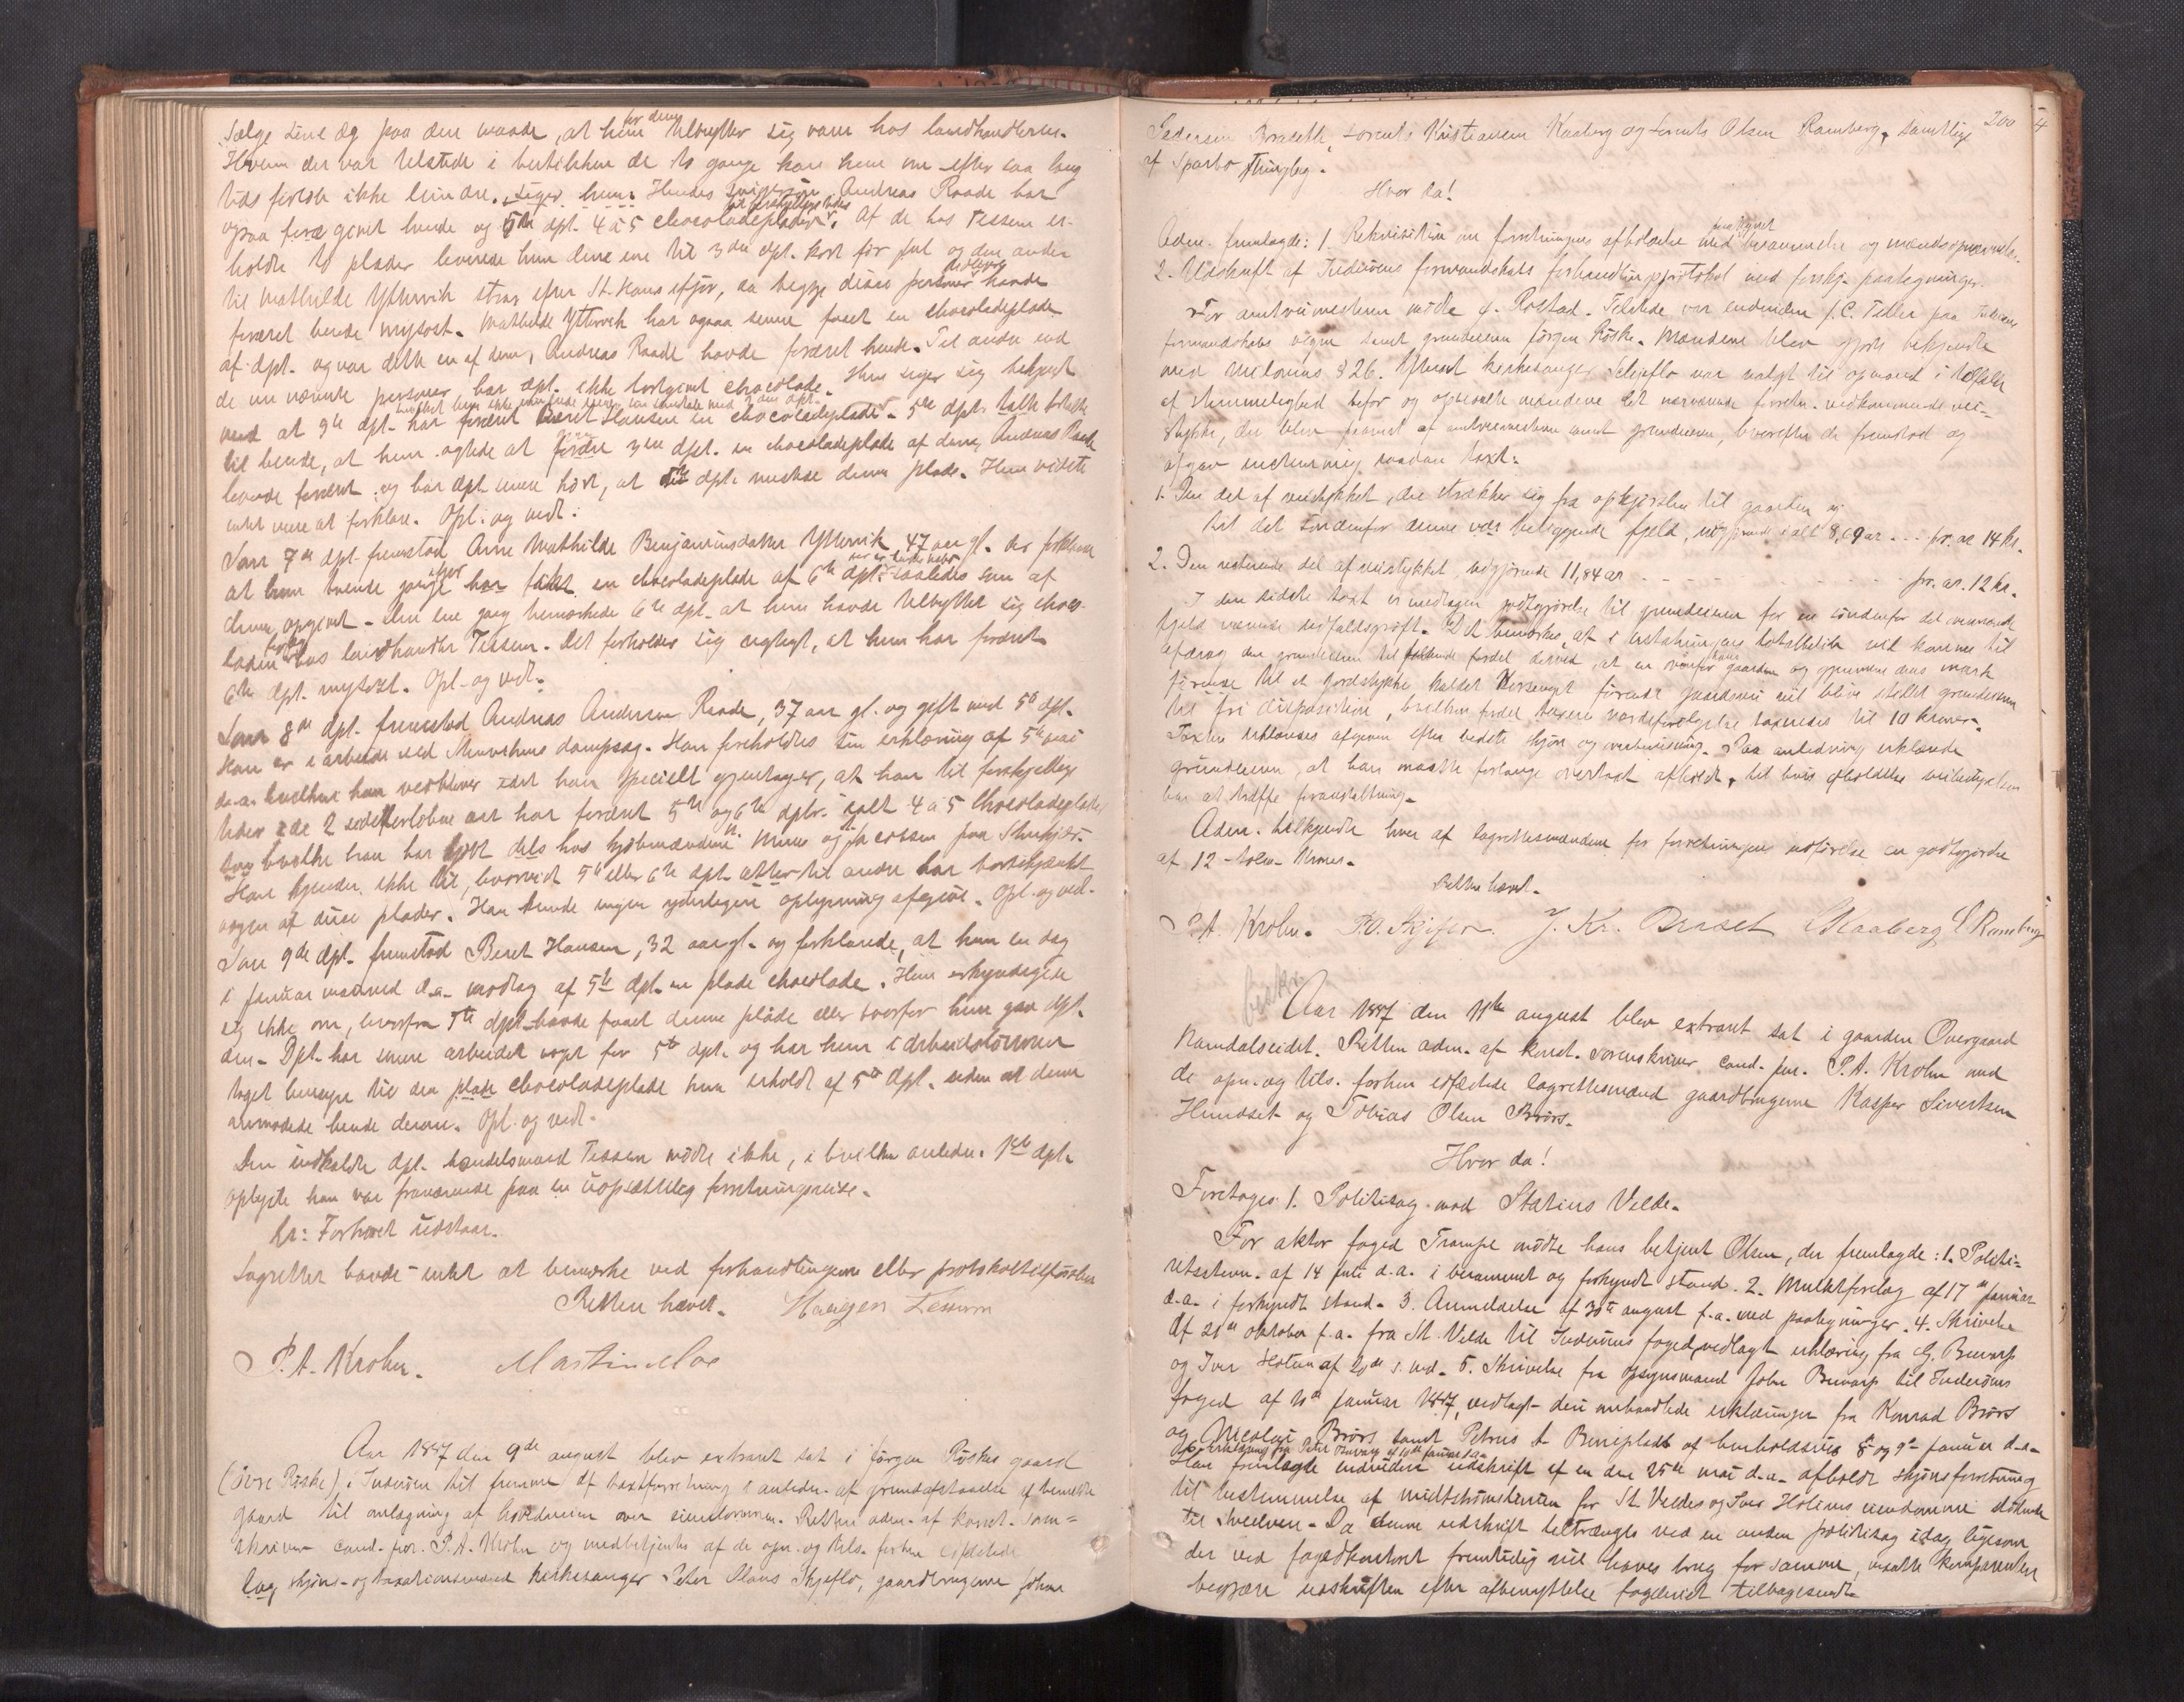 sælge sine æg paa den maade, at hun for dem tilbytter sig varer hos landhandleren.
Hvem der var tilstede i butikken de to gange kan hun nu efter saa lang
tids forløb ikke erindre, siger hun. Hendes svigersøn Andreas Raade har
ogsaa foræ givet hende og 5te dpt. 4 a 5 chocoladeplader. Af de hos Tessem er-
holdte to plader leverede hun den ene til 3die dpt. kort før jul og den anden
til Mathilde Yttervik strax efter St. Hans ifjor, da begge disse personer havde
foræret hende mysost. Mathilde Yttervik har ogsaa senere faaet en chocoladeplade
af dpt. og var dette en af dem, Andreas Raade havde foræret hende. Til andre end
de nu nævnte personer har dpt. ikke bortgivet chocolade. Hun siger sig bekjendt
med at 9de dpt. har foræret Beret Hansen en chocoladeplade. 5te dpt. talte
til hende, at hun agtede at forære 3die dpt. en chocoladeplade af dem, Andreas Raade
havde foræret, og har dpt. senere hørt, at 5te dpt. mistede denne plade. Hun vidste
intet mere at forklare. Opl. og vedt.
Som 7de dpt. fremstod Anne Mathilde Benjaminsdatter Yttervik, 47 aar gl. der forklarer
at hun tvende gange har faaet en chocoladeplade af 6te dpt. saaledes som af
denne opgivet. Den ene gang bemærkede 6te dpt. at hun havde tilbyttet sig choco-
laden hos landhandler Tessem. Det forholder sig rigtigt, at hun har foræret
6te dpt. mysost. Opl. og vedt.
Som 8de dpt. fremstod Andreas Andersen Raade, 37 aar gl. og gift med 5te dpt.
Han er i arbeide ved dampsag. Han foreholdtes sin erklæring af 5te mai
d.a. hvilken han vedbliver idet han specielt gjentager, at han til forskjellige
tider i de 2 sidstforløbne aar har foræret 5te og 6te dpt. ialt 4 a 5 chocoladeplader
som hvilke han har kjøbt dels hos kjøbmændene Muus og Jacobsen paa Stenkjær.
Han kjender ikke til, hvorvidt 5te eller 6te dpt. atter til andre har bortskjænket
nogen af disse plader. Han kunde ingen yderligere oplysning afgive. Opl. og vedt.
Som 9de dpt. fremstod Beret Hansen, 32 aar gl. og forklarede, at hun en dag
i januar maaned d.a. modtog af 5te dpt. en plade chocolade. Hun erkyndigede
sig ikke om, hvorfra 5te dpt. havde faaet denne plade eller hvorfor hun gav dpt.
den. Dpt. har senere arbeidet noget for 5te dpt. og har hun i arbeidslønnen
taget hensyn til den plade chocoladeplade hun erholdt af 5te dpt. uden at denne
anmodede hende derom. Opl. og vedt.
Den indkaldte dpt. handelsmand Tessem mødte ikke, i hvilken anledn. 1ste dpt.
oplyste han var fraværende paa en uopsættelig forretningsreise.
Kr: Forhøret udstaar.
Lagrettet havde intet at bemærke ved forhandlingerne eller protokoltilførslen
Retten hævet. Haagen Tessem
P. A. Krohn. Martin Moe
Aar 1887 den 9de august blev extraret sat i Jørgen Røskes gaard
(øvre Røske) i Inderøen til fremme af taxtforretning i anledn. af grundafstaaelse af bemeldte
gaard til anlægning af hovedveien over eiendommen. Retten adm. af konst. soren=
skriver cand. jur. P. A. Krohn og medbetjentes af de opn. og tils. forhen edfæstede
lag skjøns- og taxationsmænd kirkesanger Peter Olaus Skjeflo, gaardbrugerne Johan
200
Pedersen Braseth, Lorents Kristiansen Kaaberg og Lorents Olsen Ramberg, samtlige
af Sparbo thinglag.
Hvor da!
Adm. fremlagde: 1. Rekvisition om forretningens afholdelse med berammelse og mændsopnævnelse.
2. Udskrift af Inderøens formandskabs forhandlingsprotokol med forskj. paategninger.
For amtveimesteren mødte O. Rostad. Tilstede var endvidere J. C. Tiller paa Inderøens
formandskabs vegne samt grundeieren Jørgen Røske. Mændene blev gjort bekjendte
med veilovens § 26. Ifteret kirkesanger Skjeflo var valgt til opmand i tilfælde
af stemmelighed befor og opmaalte mændene det nærværende forretn. vedkommende vei-
stykke, der blev paavist af amtveimesteren samt grundeieren, hvorefter de fremstod og
afgav enstemmig saadan taxt:
1. Den del af veistykket, der strækker sig fra opkjørslen til gaarden og
til det søndenfor denne vær beliggende fjeld, udgjørende ialt 8,69 ar . . . pr. ar 14 kr.
2. Den resterende del af veistykket, udgjørende 11,84 ar . . . . . . pr. ar. 12 kr.
I den sidste taxt er medtagen godtgjørelse til grundeieren for en søndenfor det nævnte
fjeld værende nedfaldsgrøft. Det bemærkes, at i erstatningens totalbeløb vil komme til
afdrag den grundeieren tilfaldende fordel derved, at en ovenfor gaarden og gjennem dens mark
førende til et jordstykke kaldet førende gaardsvei vil blive stillet grundeieren
til fri disposition, hvilken fordel værdiforøgelse taxeredes til 10 kroner.
Taxten erklæredes afgiven efter bedste skjøn og overbevisning. Paa anledning erklærede
grundeieren, at han maatte forlange overtaxt afholdt, til hvis afholdelse veibestyrelsen
har at træffe foranstaltning.
Adm. tilkjendte hver af lagrettesmændene for forretningens udførelse en godtgjørelse
af 12 - tolv - kroner.
Retten hævet.
P. A. Krohn. P. O. Skjeflo. J. Kr. Braset L Kaaberg L Ramberg
Aar 1887 den 11te august blev extraret sat i gaarden Overgaard
Namdalseidet. Retten adm. af konst. sorenskriver cand. jur. P. A. Krohn med
de opn. og tils. forhen edfæstede lagrettesmænd gaardbrugerne Kasper Sivertsen
Hundset og Tobias Olsen Brørs.
Hvor da!
Foretoges 1. Politisag mod Statius Velde.
For aktor foged Trampe mødte hans betjent Olsen, der fremlagde: 1. Politi=
retsstevn. af 14 juli d.a. i berammet og forkyndt stand. 2. Mulktforelæg af 17de januar
d.a. i forkyndt stand. 3. Anmeldelse af 30te august f.a. med paategninger. 4. Skrivelse
af 21de oktober f.a. fra St. Velde til Inderøens foged, vedlagt erklæring fra G. Buvarp
og Iver Holien af 20de s. md. 5. Skrivelse fra opsynsmand John Buvarp til Inderøens
foged af 10de januar 1887, vedlagt deri omhandlede erklæringer fra Konrad Brørs
og Nicolai Brørs samt Petrus A. af henholdsvis 8de og 9de januar d.a.
6. Erklæring fra Peter Buvarp af 10de januar d.a.
Han fremlagte endvidere udskrift af en den 25de mai d.a. afholdt skjønsforretning
til bestemmelse af midtstrømslinien for St. Veldes og Iver Holiens eiendomme stødende
til . Da denne udskrift tiltrænges ved en anden politisag idag ligesom
der ved fogedkontoret fremtidig vil haves brug for samme, maatte komparenten
begjære udskriften efter afbenyttelse fogderiet tilbagesendt.